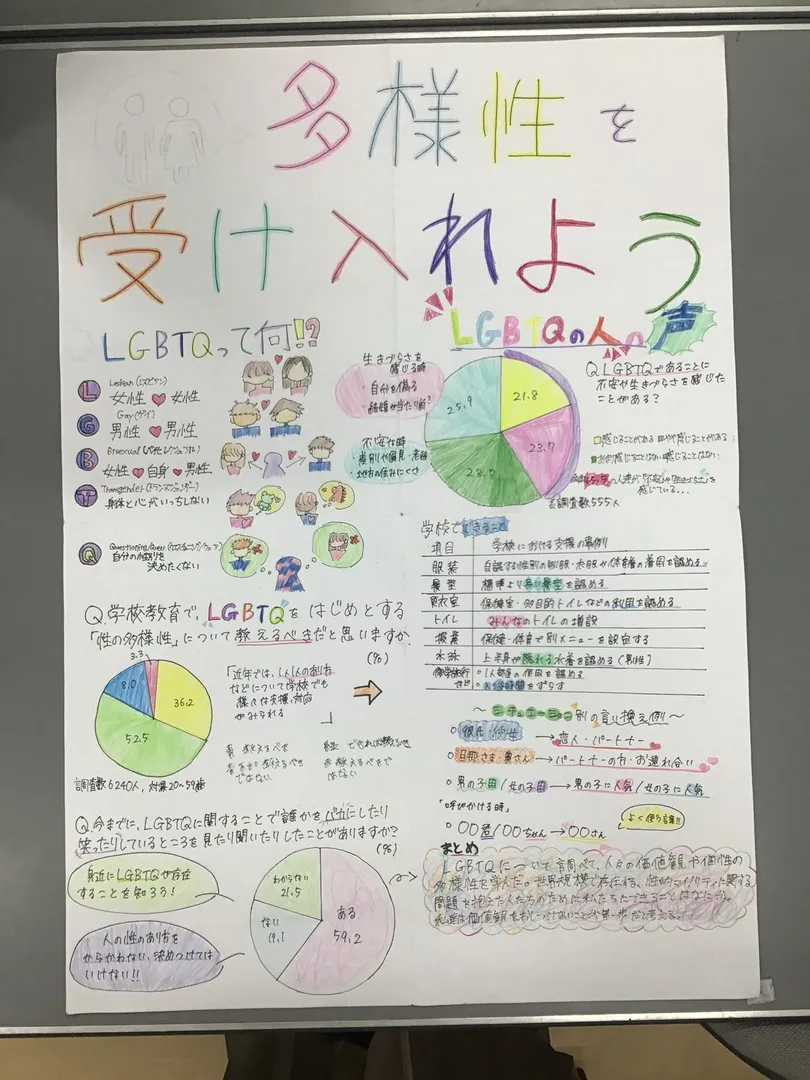 多様性を
受け入れよう
LGBTQって何!!?
L Lesbian(レズビアン)
女性 ♥ 女性
G Gay(ゲイ)
男性 ♥ 男性
B Bisexual(バイセクシュアル)
女性 ♥ 自身 ♥ 男性
T Transgender(トランスジェンダー)
身体と心がいっちしない
Q Questioning/Queer
自分の性別を
決めたくない
LGBTQの人の声
生きづらさを
感じる時
・自分を偽る
・結婚が当たり前?
不安な時
・差別や偏見・老後
・地方の住みにくさ
25.9
21.8
23.7
Q.LGBTQであることに
不安や生きづらさを感じた
ことがある?
感じることがある やや感じることがある
あまり感じることはない 感じることはない
感じている…
調査数555人
学校でできること
項目 学校における支援の事例
服装 自認する性別の制服・衣服や体育着の着用を認める。
髪型 標準より長い髪型を認める
更衣室 保健室・多目的トイレなどの利用を認める
トイレ みんなのトイレの増設
授業 保健・体育で別メニューを設定する
水泳 上半身が隠れる水着を認める(男性)
修学旅行など ○1人部屋の使用を認める
○入浴時間をずらす
Q.学校教育で、LGBTQをはじめとする
「性の多様性」について教えるべきだと思いますか
(%)
3.3
8.0
36.2
52.5
「近年では、1人1人のありかた
などについて学校でも
様々な支援、対応
がみられる
」
調査数6240人、対象20~59歳
〜シチュエーション別の言い換え例〜
○彼氏・彼女 → 恋人・パートナー
○旦那さま・奥さん → パートナーの方・お連れ合い
○男の子用/女の子用 → 男の子に人気/女の子に人気
「呼びかける時」
○○○君/○○ちゃん → ○○さん
よく使う言葉!!
Q.今までに、LGBTQに関することで誰かをバカにしたり
笑ったりしているところを見たり聞いたりしたことがありますか?
(%)
身近にLGBTQが存在
することを知ろう!
人の性のあり方を
からかわない、決めつけては
いけない!!
わからない
21.5
ある
59.2
ない
19.1
まとめ
LGBTQについて調べて、人々の価値観や個性の
多様性を学んだ。世界規模で存在する、性的マイノリティに関する
問題を抱えた人たちのために私たちにできることはなにか。